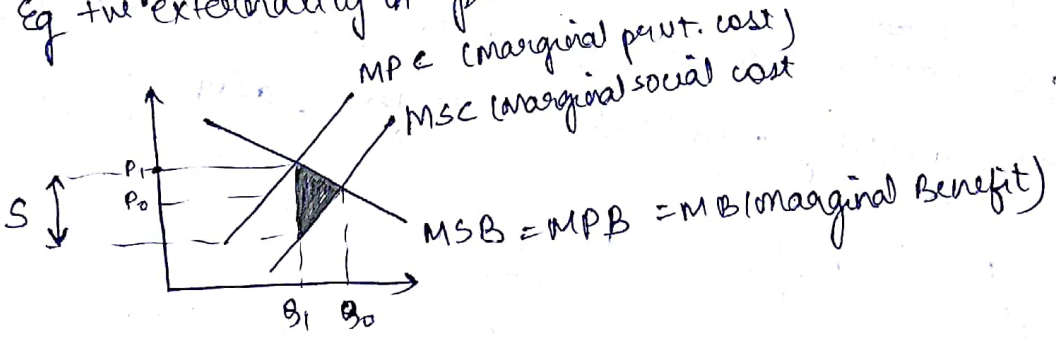 Eg +ve externality in
MPC (marginal pvt. cost)
MSC (marginal social cost
P1
S
P0
MSB = MPB = MB (marginal Benefit)
Q1 Q0